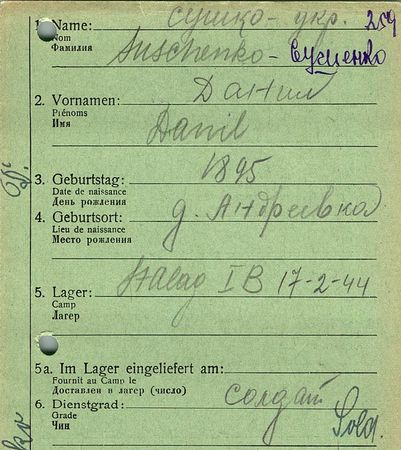 сушко - укр. 259
1. Name:
Nom
Фамилия
Suschenko - Сусценко
2. Vornamen: Данил
Prénoms
Имя
Danil
3. Geburtstag: 1895
Date de naissance
День рождения
4. Geburtsort: д. Андреевка
Lieu de naissance
Место рождения
5. Lager: Stalag IB 17-2-44
Camp
Лагерь
5a. Im Lager eingeliefert am:
Fournit au Camp le
Доставлен в лагерь (число)
6. Dienstgrad: солдат
Grade
Чин
Sold.